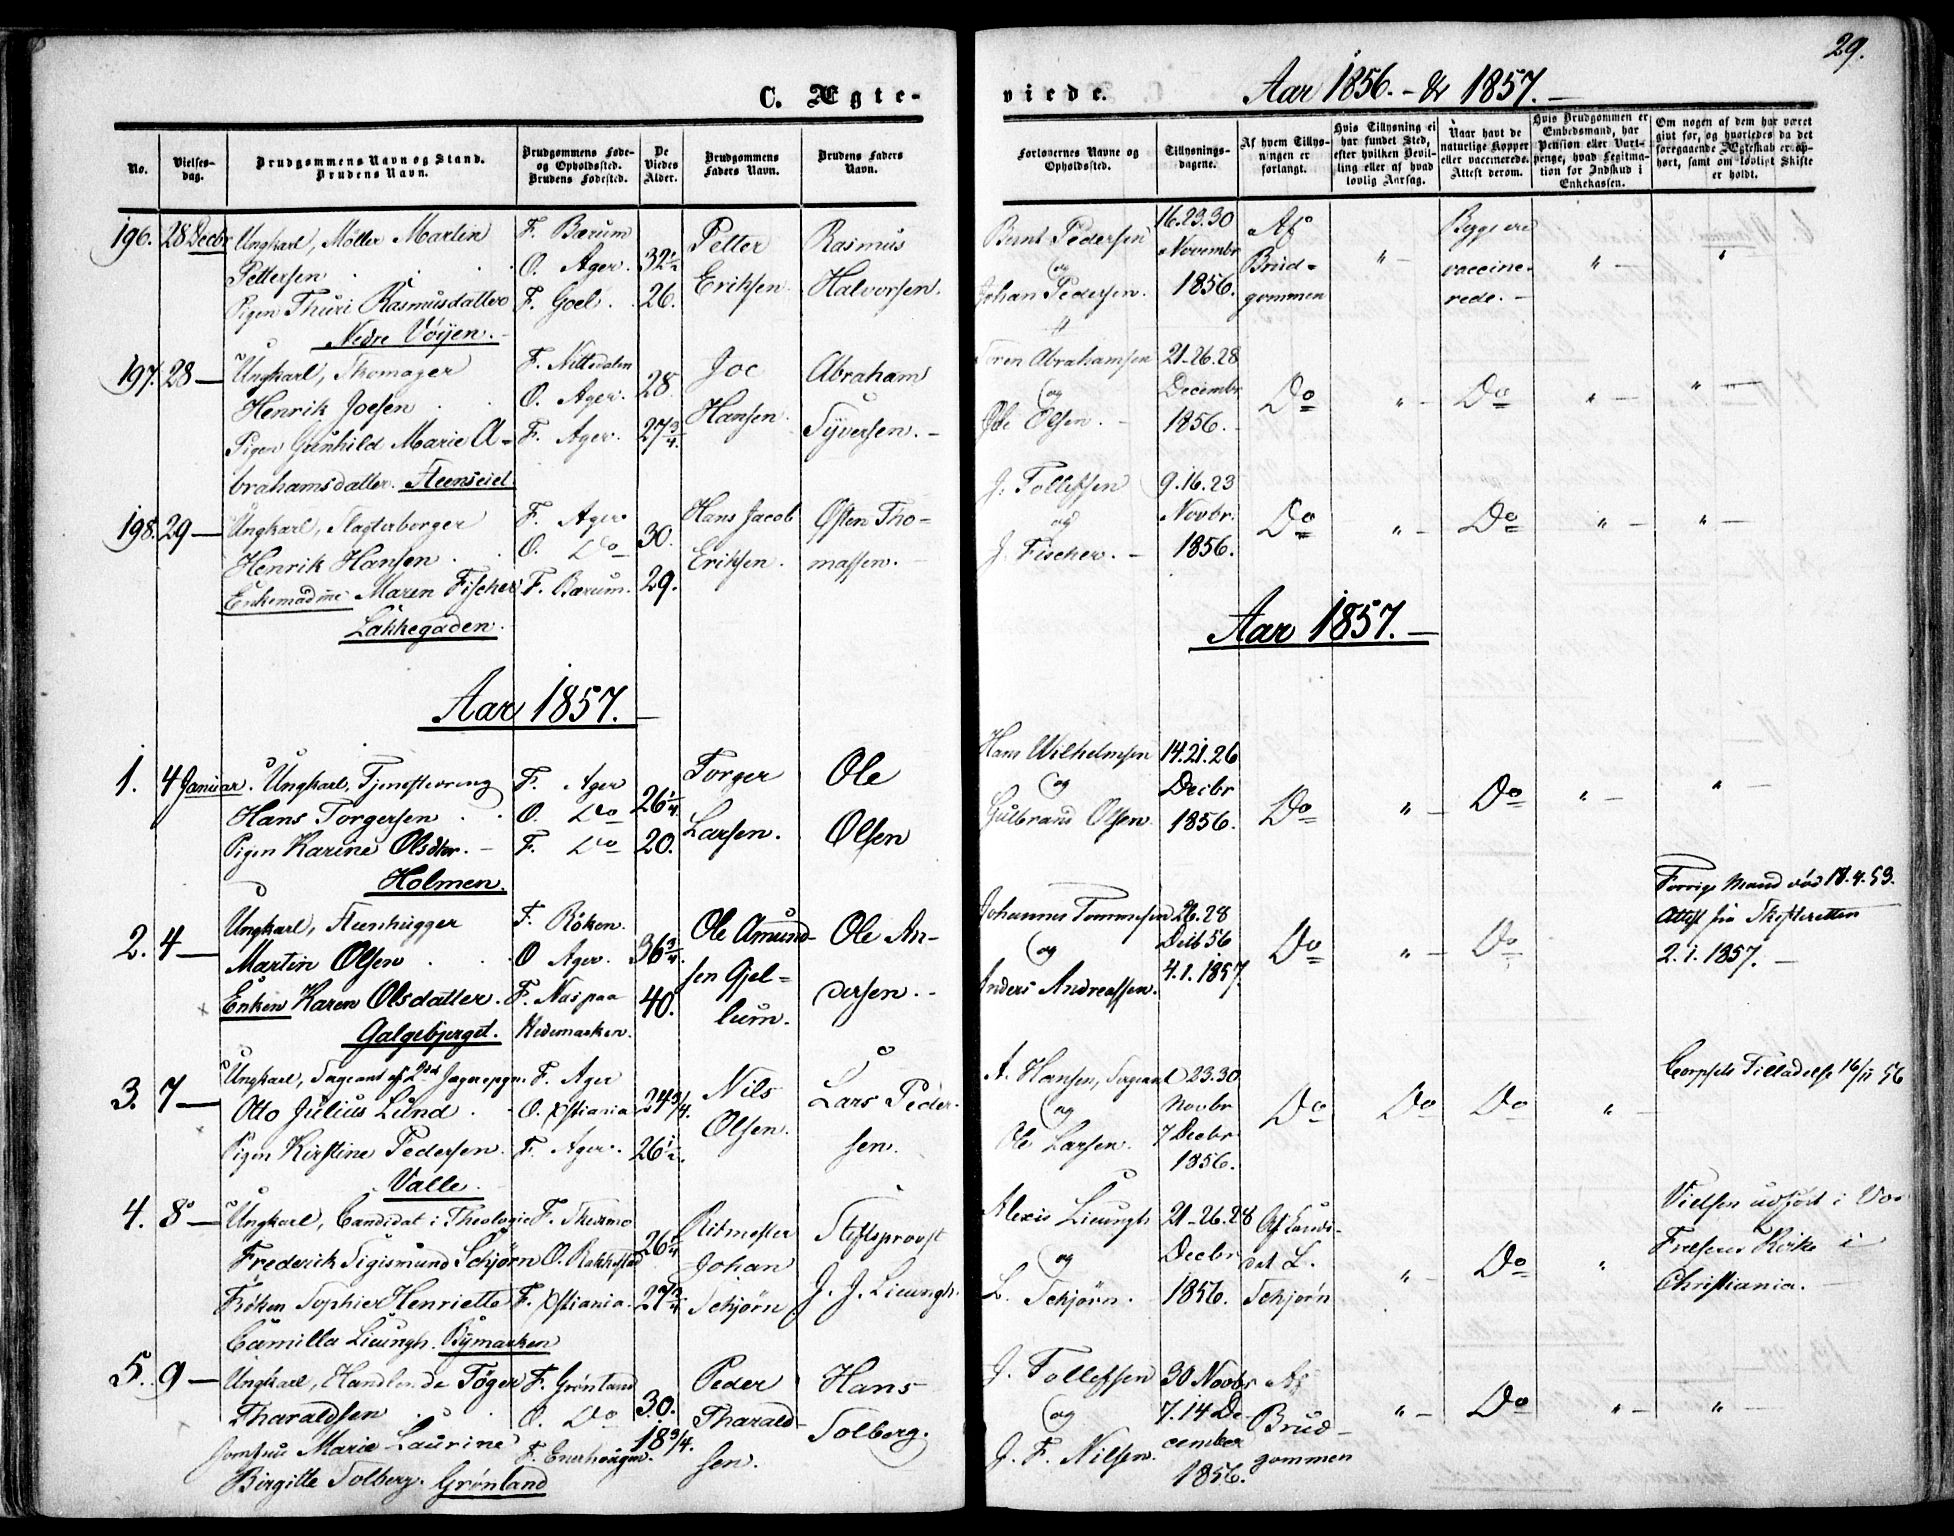 29.
C. Ægte-
viede.
Aar 1856. - & 1857. -
No.
Vielses-
dag.
Brudgommens Navn og Stand.
Brudens Navn.
Brudgommens Føde-
og Opholdssted.
Brudens Fødested.
De
Viedes
Alder.
Brudgommens
Faders Navn.
Brudens Faders
Navn.
Forlovernes Navne og
Opholdssted.
Tillysnings-
dagene.
Af hvem Tillys-
ningen er
forlangt.
Hvis Tillysning ei
har fundet Sted,
efter hvilken Bevil-
ling eller af hvad
lovlig Aarsag.
Naar havt de
naturlige Kopper
eller vaccinerede.
Attest derom.
Hvis Brudgommen er
Embedsmand, har
Pension eller Vart-
penge, hvad Legitima-
tion for Indskud i
Enkekassen.
Om nogen af dem har været
gift før, og hvorledes da det
foregaaende Ægteskab er op-
hørt, samt om lovligt Skifte
er holdt.
196. 28 Decbr Ungkarl, Møller Martin F. Bærum Petter Rasmus Bernt Pedersen 16.23.30 Af Begge ere
Pettersen O. Ager. 32½ og Novembr Brud- " - vaccine- " - "
Pigen Thuri Rasmusdatter F. Goel. 26. Eriksen Halvorsen. Johan Pedersen. 1856. gommen rede. -
Nedre Vøyen. -
197. 28 - Ungkarl, F. Nittedalen Joe Abraham 21-26.28
Henrik Joesen O. Ager. 28 og Decembr Do " - Do " - " -
Pigen Gunhild Marie A- F. Ager. 27¾. Hansen. Syversen. - Ole Olsen. - 1856. -
brahamsdatter. Steenseiet
198. 29 - Ungkarl, F. Ager Hans Jacob Osten Tho- J. Tollefsen 9.16.23
Henrik Hansen O. Do 30. og Novbr. Do " - Do " - " -
Enkemadme Maren Fischer F. Bærum. 29. Eriksen. massen. - J. Fischer. - 1856.
Lakkegaden.
Aar 1857. -
Aar 1857. -
1. 4 Januar. Ungkarl, F. Ager Torger Ole Hans Wilhelmsen 14.21.26
Hans Torgersen O. Do 26¼ og Decbr Do " - Do " - " -
Pigen Karine Olsdtr. - F. Do 20. Larsen. Olsen Gulbrand Olsen. 1856.
Holmen.
2. 4 - Ungkarl, Steenhugger F. Röken. Ole Amund- Ole An- Johannes Tommesen 26.28 Forrige Mand død 18.4.53.
Martin Olsen O Ager. 36¾. sen Gjel- og Decb 56 Do " - Do Attest fra Skifteretten
Enken Karen Olsdatter. F. Næs paa 40. lum. dersen. - Anders Andreassen. 4.1.1857. 2.1.1857. -
Galgebjerget. Hedemarken.
3. 7 - Ungkarl, Sergeant af 2det F. Ager Nils Lars Peder- A. Hansen, Sergeant 23.30 Corpsets Tilladelse 16/11 56
Otto Julius Lund O. Xstiania 24¾. og Novbr Do Do Do " -
Pigen Kirstine Pedersen. F. Ager. 26½. Olsen. sen. Ole Larsen. 7 Decbr
Valle. 1856.
4. 8 - Ungkarl, Candidat i Theologie F. Ritmester Stiftsprovst Alexis Lieungh 21-26.28 Vielsen udført i Vor
Frederik Sigismund Schjørn O. Rakkestad 26¼ Johan og Decbr " - Do " Frelsers Kirke i
Frøken Sophie Henriette F. Xstiania. Schjørn J. J. Lieungh. L. Schjørn. 1856. Schjørn Christiania. -
Camilla Lieungh. Bymarken
5. 9 - Ungkarl, Handlende Töger F. Grønland Peder Hans J. Tollefsen 30 Novbr Af
Tharaldsen O. Do 30. Tharald- og 7.14 De- Brud- " - Do " - " -
Jomfru Marie Laurine F. Enerhougen. 18¾. sen. Solberg. J. F. Nilsen. cember gommen
Birgitte Solberg. Grønland 1856.